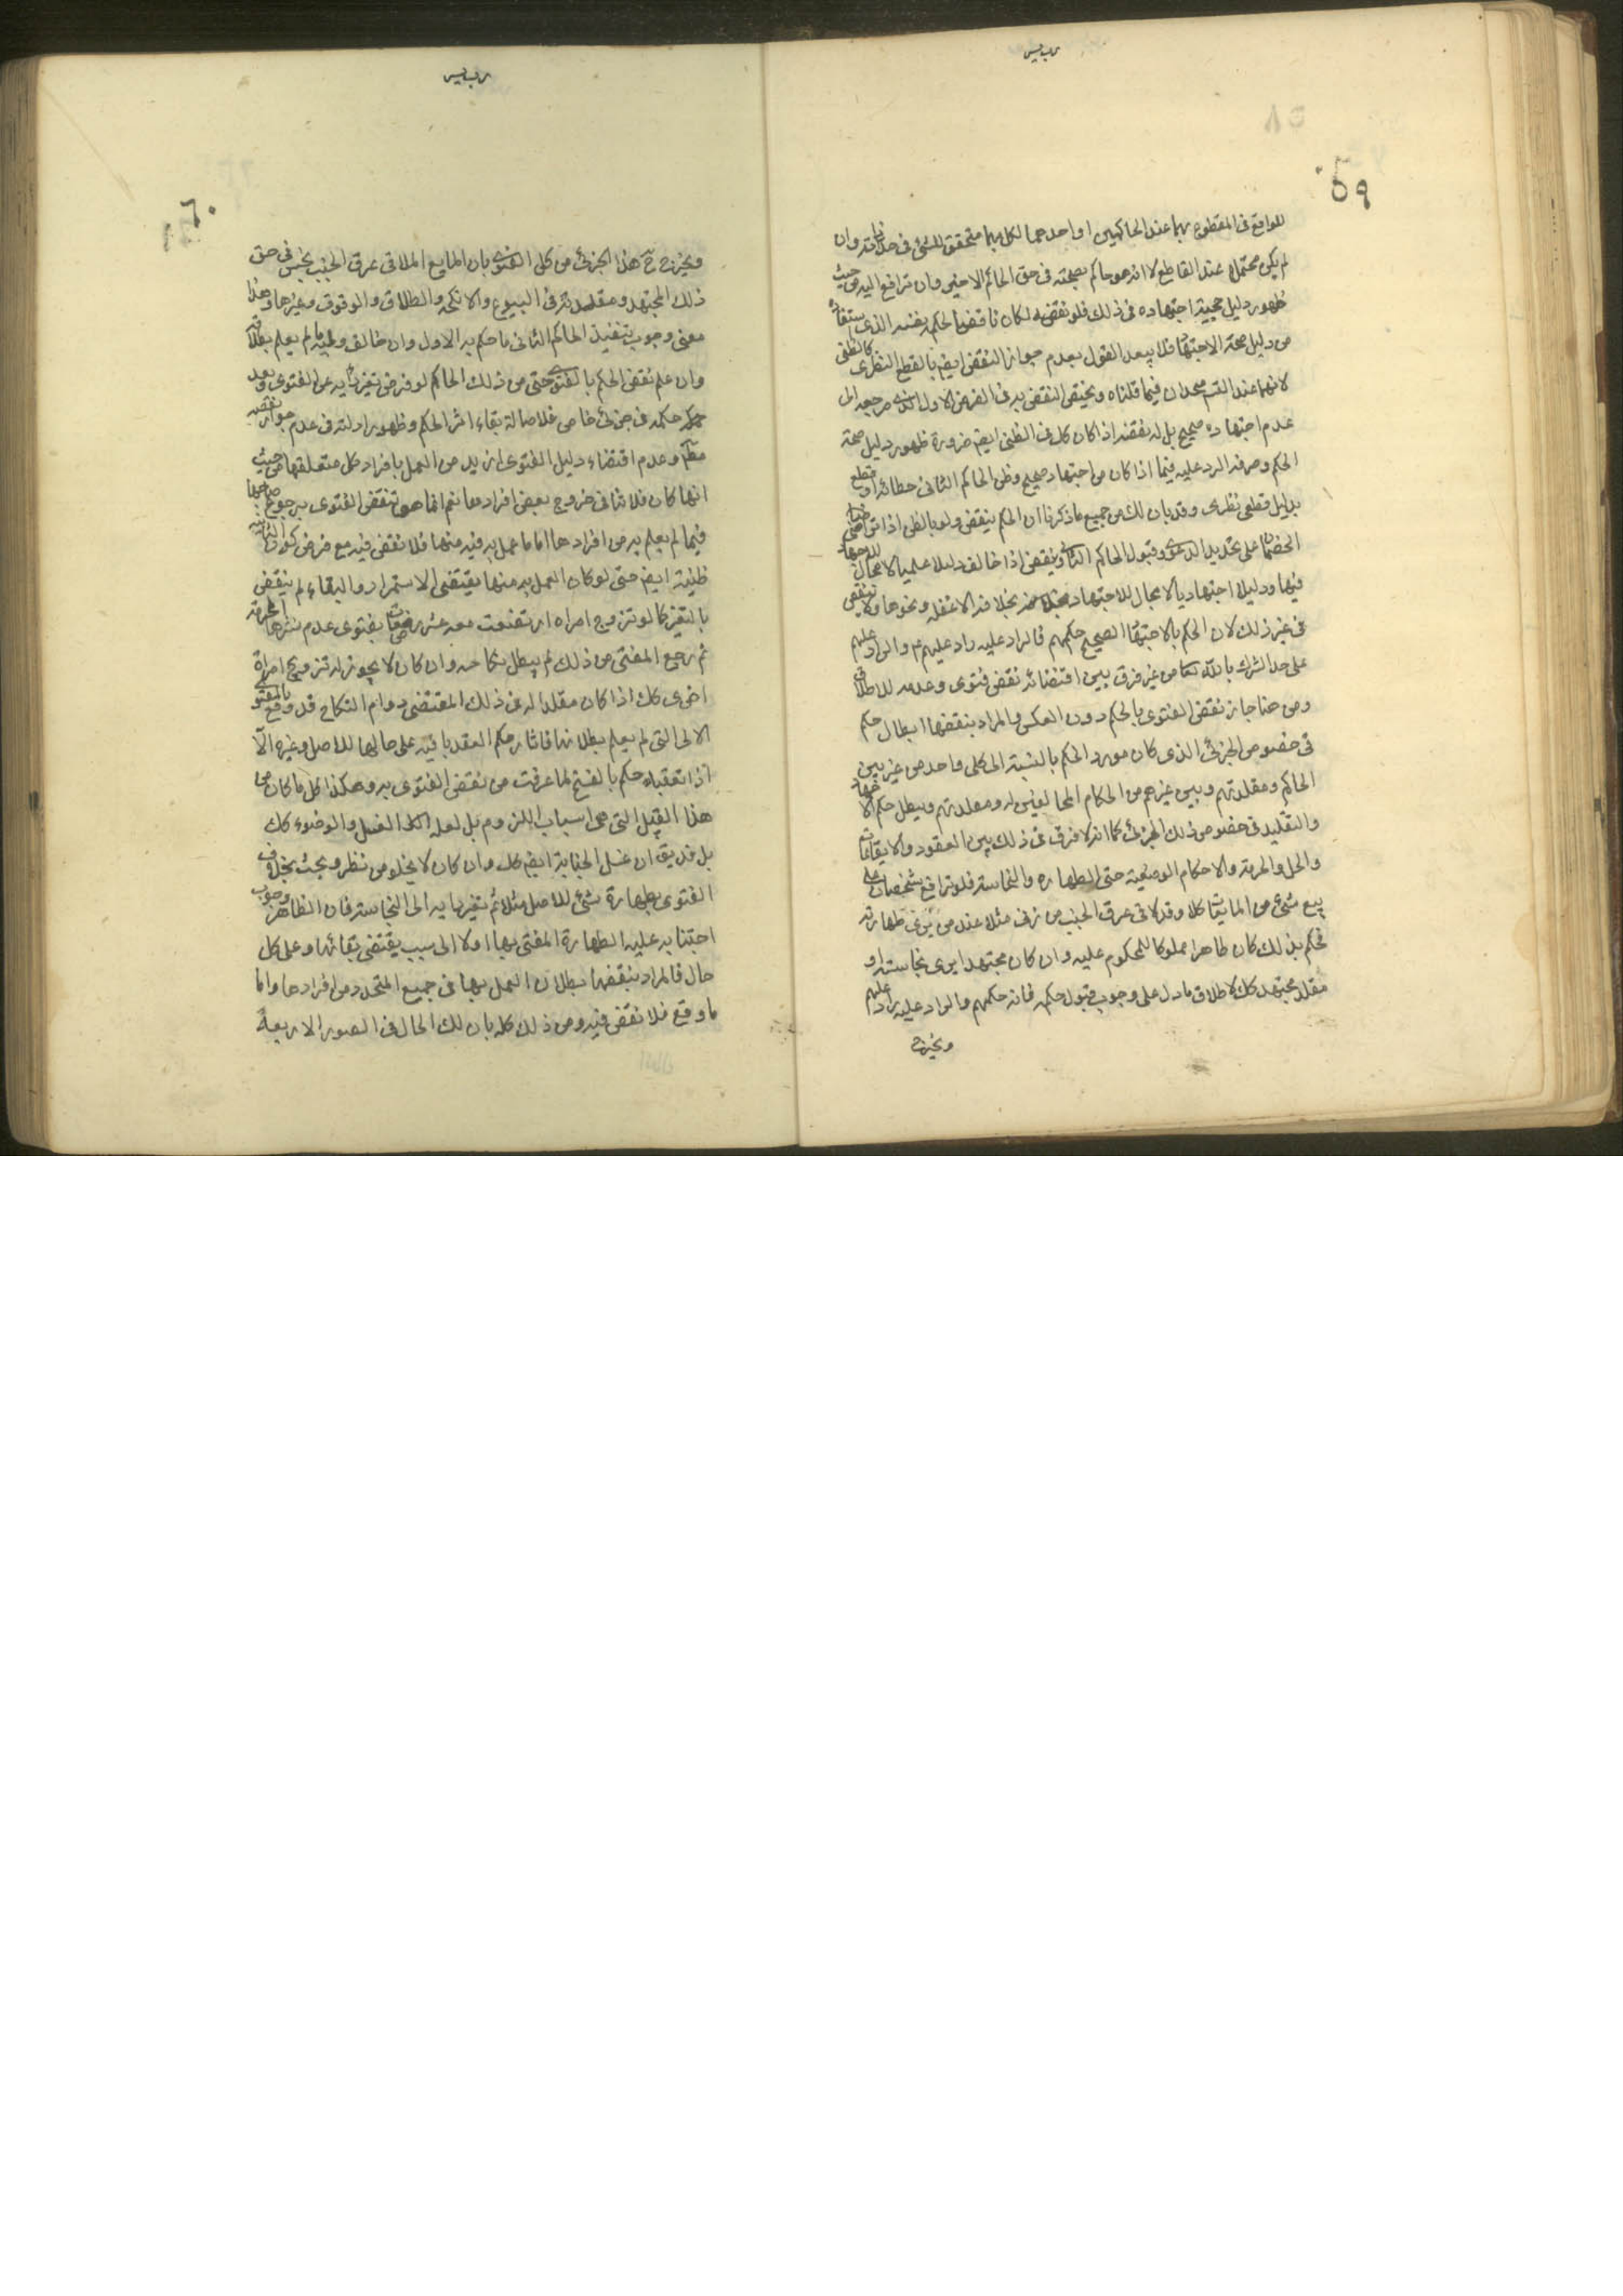 ٥٩
للواقع في المقطوع بهما عند الحاكمين او احدهما لكل منهما متحقق للشئ في حد ذاته وان
لم يكن محتملا عند القاطع لا انه هو حاكم بصحته في حق الحاكم الاخر وان ترافع اليه من حيث
ظهور دليل حجية اجتهاده في ذلك فلو نقضه لكان ناقضا لحكم نفسه الذي استفاده
من دليل صحة الاجتهاد فلا يبعد القول بعدم جواز النقض ايضا بالقطع النظرى كالظنى
لانهما عند القسم متحدان فيما قلناه ويختص النقض به في الفرض الاول الذي مرجعه الى
عدم اجتهاده صحيح بل له نقضه اذا كان كك في الظنى ايضا ضرورة ظهور دليل صحة
الحكم وحرفة الرد عليه فيما اذا كان من اجتهاد صحيح وظن الحاكم الثانى خطائه او قطع
بدليل قطعى نظرى وقد بان لك من جميع ما ذكرنا ان الحكم ينقض ولو بالظن اذا تراضى
الخصمان على تجديد الدعوى وقبول الحاكم الثانى وينقض اذا خالف دليلا علميا لا مجال للاجتهاد
فيها ودليلا اجتهاديا لا مجال للاجتهاد بخلافه الا غفلة ونحوها ولا ينقض
في غير ذلك لان الحكم بالاجتهاد الصحيح حكمهم فالراد عليه راد عليهم ع والراد عليهم
على حد الشرك بالله تعالى من غير فرق بين اقتضائه نقض فتوى وعدمه للاطلاق
ومن هنا جاز نقض الفتوى بالحكم دون العكس والمراد بنقضها ابطال حكم
في خصوص الجزئى الذى كان مورد الحكم بالنسبة الى كلى واحد من غير بين
الحاكم ومقلدتهم وبين غيرهم من الحكام المخالفين له ومقلدتهم ويبطل حكم الاجتهاد
والتقليد في خصوص ذلك الجزئى كما انه لا فرق في ذلك بين العقود والايقاعات
والحل والحرمة والاحكام الوضعية حتى الطهارة والنجاسة فلو ترافع شخصان على
بيع شئ من المايعات كلا وقد لاقى عرق الجنب من زنى مثلا عند من يرى طهارته
فحكم بذلك كان طاهرا مملوكا للمحكوم عليه وان كان مجتهدا يرى نجاسته او
مقلد مجتهد كك لاطلاق ما دل على وجوب قبول حكمه فانه حكمهم والراد عليه راد عليهم
ويخرج
٦٠
ويخرج ح هذا الجزئى من كلى الفتوى بان المايع الملاقى عرق الجنب نجس في حق
ذلك المجتهد ومقلدته في البيوع والانكحة والطلاق والوقوف وغيرها وهذا
معنى وجوب تنفيذ الحاكم الثانى ما حكم به الاول وان خالف رايه ما لم يعلم بطلانه
وان علم نقض الحكم بالفتوى حتى من ذلك الحاكم لو فرض تغير رايه عن الفتوى وبعد
حكمه في جزئى خاص فلاصالة بقاء اثر الحكم وظهور ادلته في عدم جواز نقضه
مطلقا وعدم اقتضاء دليل الفتوى ازيد من العمل بافراد كل متعلقها من حيث
انها كان فلا تنافى خروج بعض افرادها نعم انما هو تنقض الفتوى برجوع صاحبها
فيما لم يعلم به من افرادها اما ما عمل به فيه منها فلا نقض فيه مع فرض كون الثانية
ظنية ايضا حتى لو كان العمل به منها يقتضى الاستمرار والبقاء لم ينقض
بالتغير كما لو تزوج امراة ارتضعت معه عشر رضعات بفتوى عدم نشرها الحرمة
ثم رجع المفتى من ذلك لم يبطل نكاحه وان كان لا يجوز له تزويج امراة
اخرى كك اذا كان مقلدا له في ذلك المقتضى دوام النكاح قد وقع بالفتوى
الاولى التى لم يعلم بطلانها فاثار حكم العقد باقية على حالها للاصل وغيره الا
اذا تعقبه حكم بالفسخ لما عرفت من نقض الفتوى به وهكذا كل ما كان من
هذا القبيل التى هى اسباب اللزوم بل لعله الكل الغسل والوضوء كك
بل قد يق ان غسل الجنابة ايضا كك وان كان لا يخلو من نظر وبحث بخلاف
الفتوى بطهارة شئ للاصل مثلا ثم تغير رايه الى النجاسة فان الظاهر وجوب
اجتنابه عليه الطهارة المفتى بها اولا الى سبب يقتضى بقائها وعلى كل
حال فالمراد بنقضها بطلان العمل بها في جميع المتجدد من افرادها واما
ما وقع فلا نقض فيه ومن ذلك كله بان لك الحال في الصور الاربعة